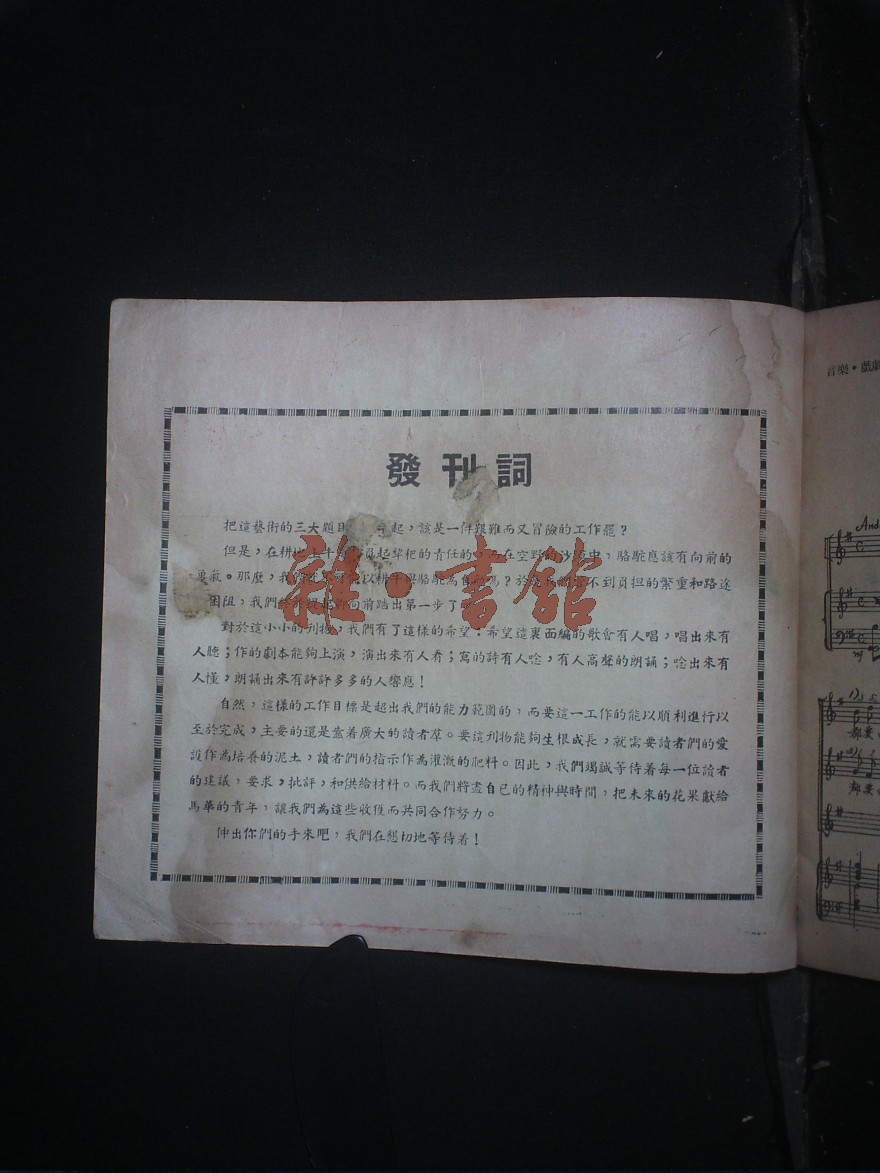 發刊詞
把這藝術的三大題目 起，該是一件艱難而又冒險的工作罷？
但是，在耕地上牛 負起犂耙的責任的，而在空野的沙漠中，駱駝應該有向前的
勇氣。那麼，我們 以耕牛與駱駝為 ？於是 不到負担的繁重和路途
困阻，我們終於提起脚向前踏出第一步了
對於這小小的刊物，我們有了這樣的希望：希望這裏面編的歌會有人唱，唱出來有
人聽；作的劇本能夠上演，演出來有人看；寫的詩有人唸，有人高聲的朗誦；唸出來有
人懂，朗誦出來有許許多多的人響應！
自然，這樣的工作目標是超出我們的能力範圍的，而要這一工作的能以順利進行以
至於完成，主要的還是靠着廣大的讀者羣。要這刊物能夠生根成長，就需要讀者們的愛
護作為培養的泥土，讀者們的指示作為灌漑的肥料。因此，我們竭誠等待着每一位讀者
的建議，要求，批評，和供給材料。而我們將盡自己的精神與時間，把未來的花果獻給
馬華的青年，讓我們為這些收獲而共同合作努力。
伸出你們的手來吧，我們在懇切地等待着！
雜·書館
音樂·戲劇